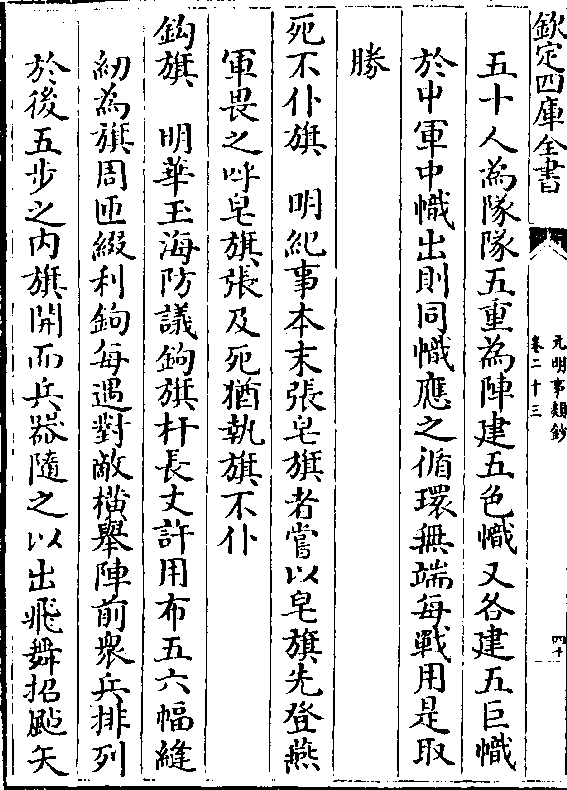 欽定四庫全書
元明事類鈔
卷二十三
四十
五十人為隊隊五重為陣建五色幟又各建五巨幟
於中軍中幟出則同幟應之循環無端每戰用是取
勝
死不仆旗　明紀事本末張皂旗者嘗以皂旗先登燕
軍畏之呼皂旗張及死猶執旗不仆
鈎旗　明華玉海防議鈎旗杆長丈許用布五六幅縫
紉為旗周匝綴利鈎每遇對敵橫舉陣前衆兵排列
於後五步之内旗開而兵器隨之以出飛舞招颭矢